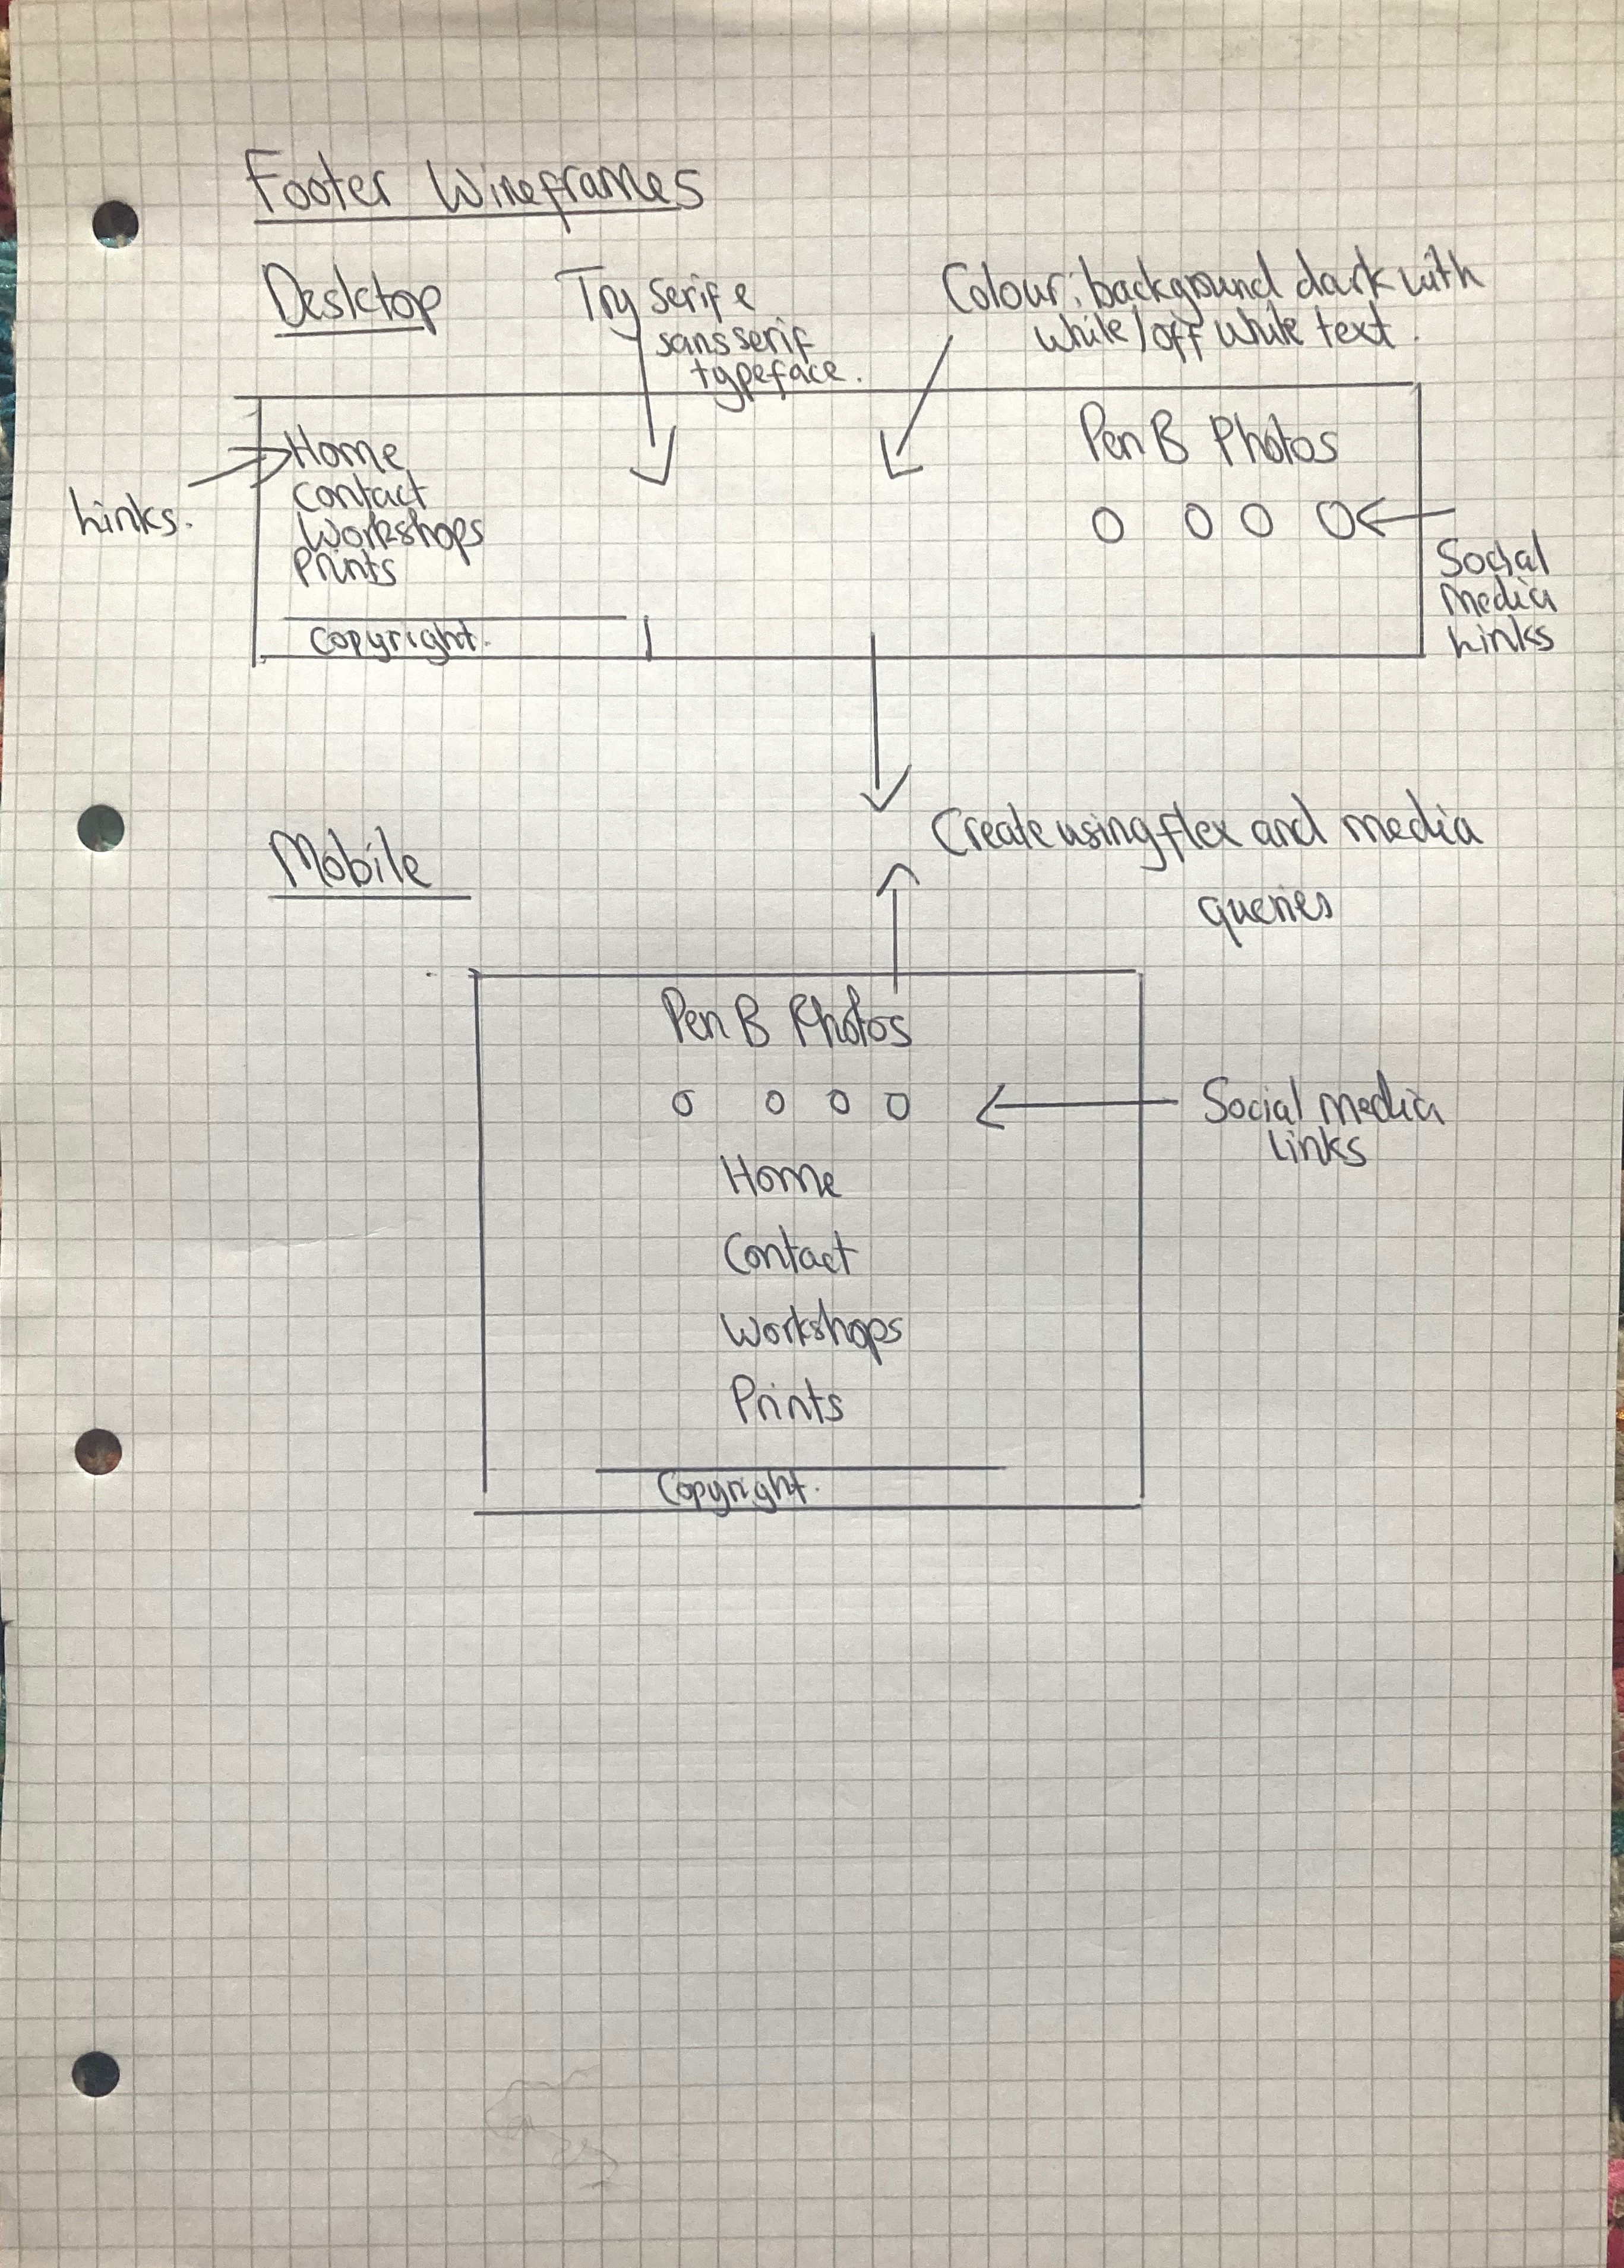 Footer Wireframes
Desktop
Try serif &
sans serif
typeface.
Colour: background dark with
white/off white text.
Links.
Home
Contact
Workshops
Prints
Copyright.
Pen B Photos
Social
media
Links
Create using flex and media
queries
Mobile
Pen B Photos
Social media
Links
Home
Contact
Workshops
Prints
Copyright.